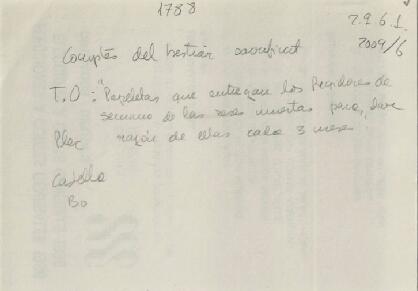 1788
7.9.6.1.
2009/6
Comptes del bestiar sacrificat
T.O: "Papeletas que entregan los Regidores de
semana de las reses muertas para dar
Plec razón de ellas cada 3 meses.
Castellà
Bo